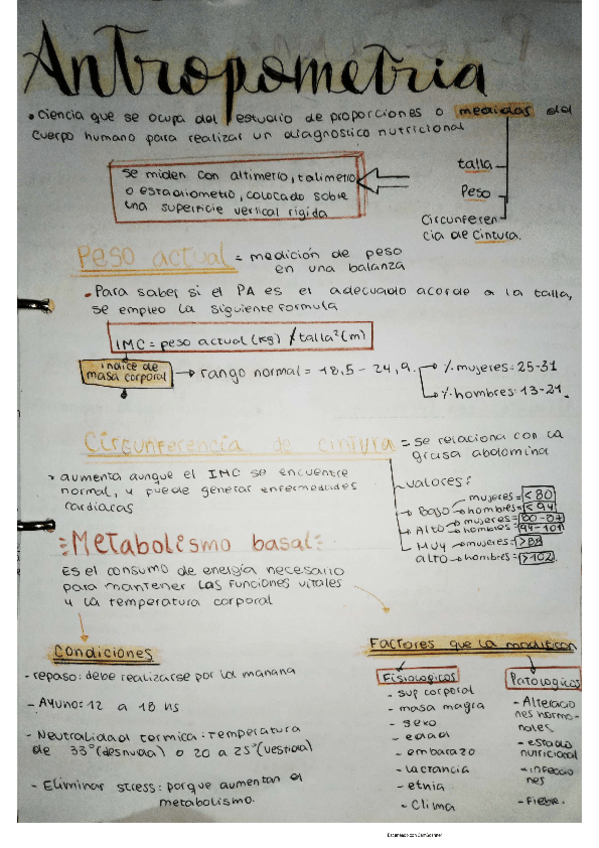 Antropometria
• Ciencia que se ocupa del estudio de proporciones o medidas del
cuerpo humano para realizar un diagnostico nutricional
talla
Peso
Circunferen
cia de cintura.
se miden con altimetro, talimetro
o estadiometro, colocado sobre
una superficie vertical rigida
Peso actual = medición de peso
en una balanza
• Para saber si el PA es el adecuado acorde a la talla,
se empleo la siguiente formula
IMC = peso actual (kg) / talla² (m)
indice de
masa corporal → rango normal = 18,5 - 24,9.
% mujeres: 25-31
% hombres: 13-21
Circunferencia de cintura = se relaciona con la
grasa abdomina
• aumenta aunque el IMC se encuentre
normal, y puede generar enfermedades
cardiacas
valores:
Bajo mujeres = < 80
hombres = < 94
Alto mujeres = 80-87
hombres = 94-101
Muy
alto mujeres = > 88
hombres = > 102
Metabolismo basal
Es el consumo de energia necesario
para mantener las funciones vitales
y la temperatura corporal
Condiciones
- reposo: debe realizarse por la manana
- Ayuno: 12 a 18 hs
- Neutralidad termica: temperatura
de 33° (desnuda) o 20 a 25° (vestida)
- Eliminar stress: porque aumentan el
metabolismo.
Factores que la modifican
Fisiologicos
- sup corporal
- masa magra
- sexo
- edad
- embarazo
- lactancia
- etnia
- Clima
Patologicos
- Alteracio
nes hormo-
nales
- estado
nutricional
- infeccio
nes
- Fiebre.
Escaneado con CamScanner